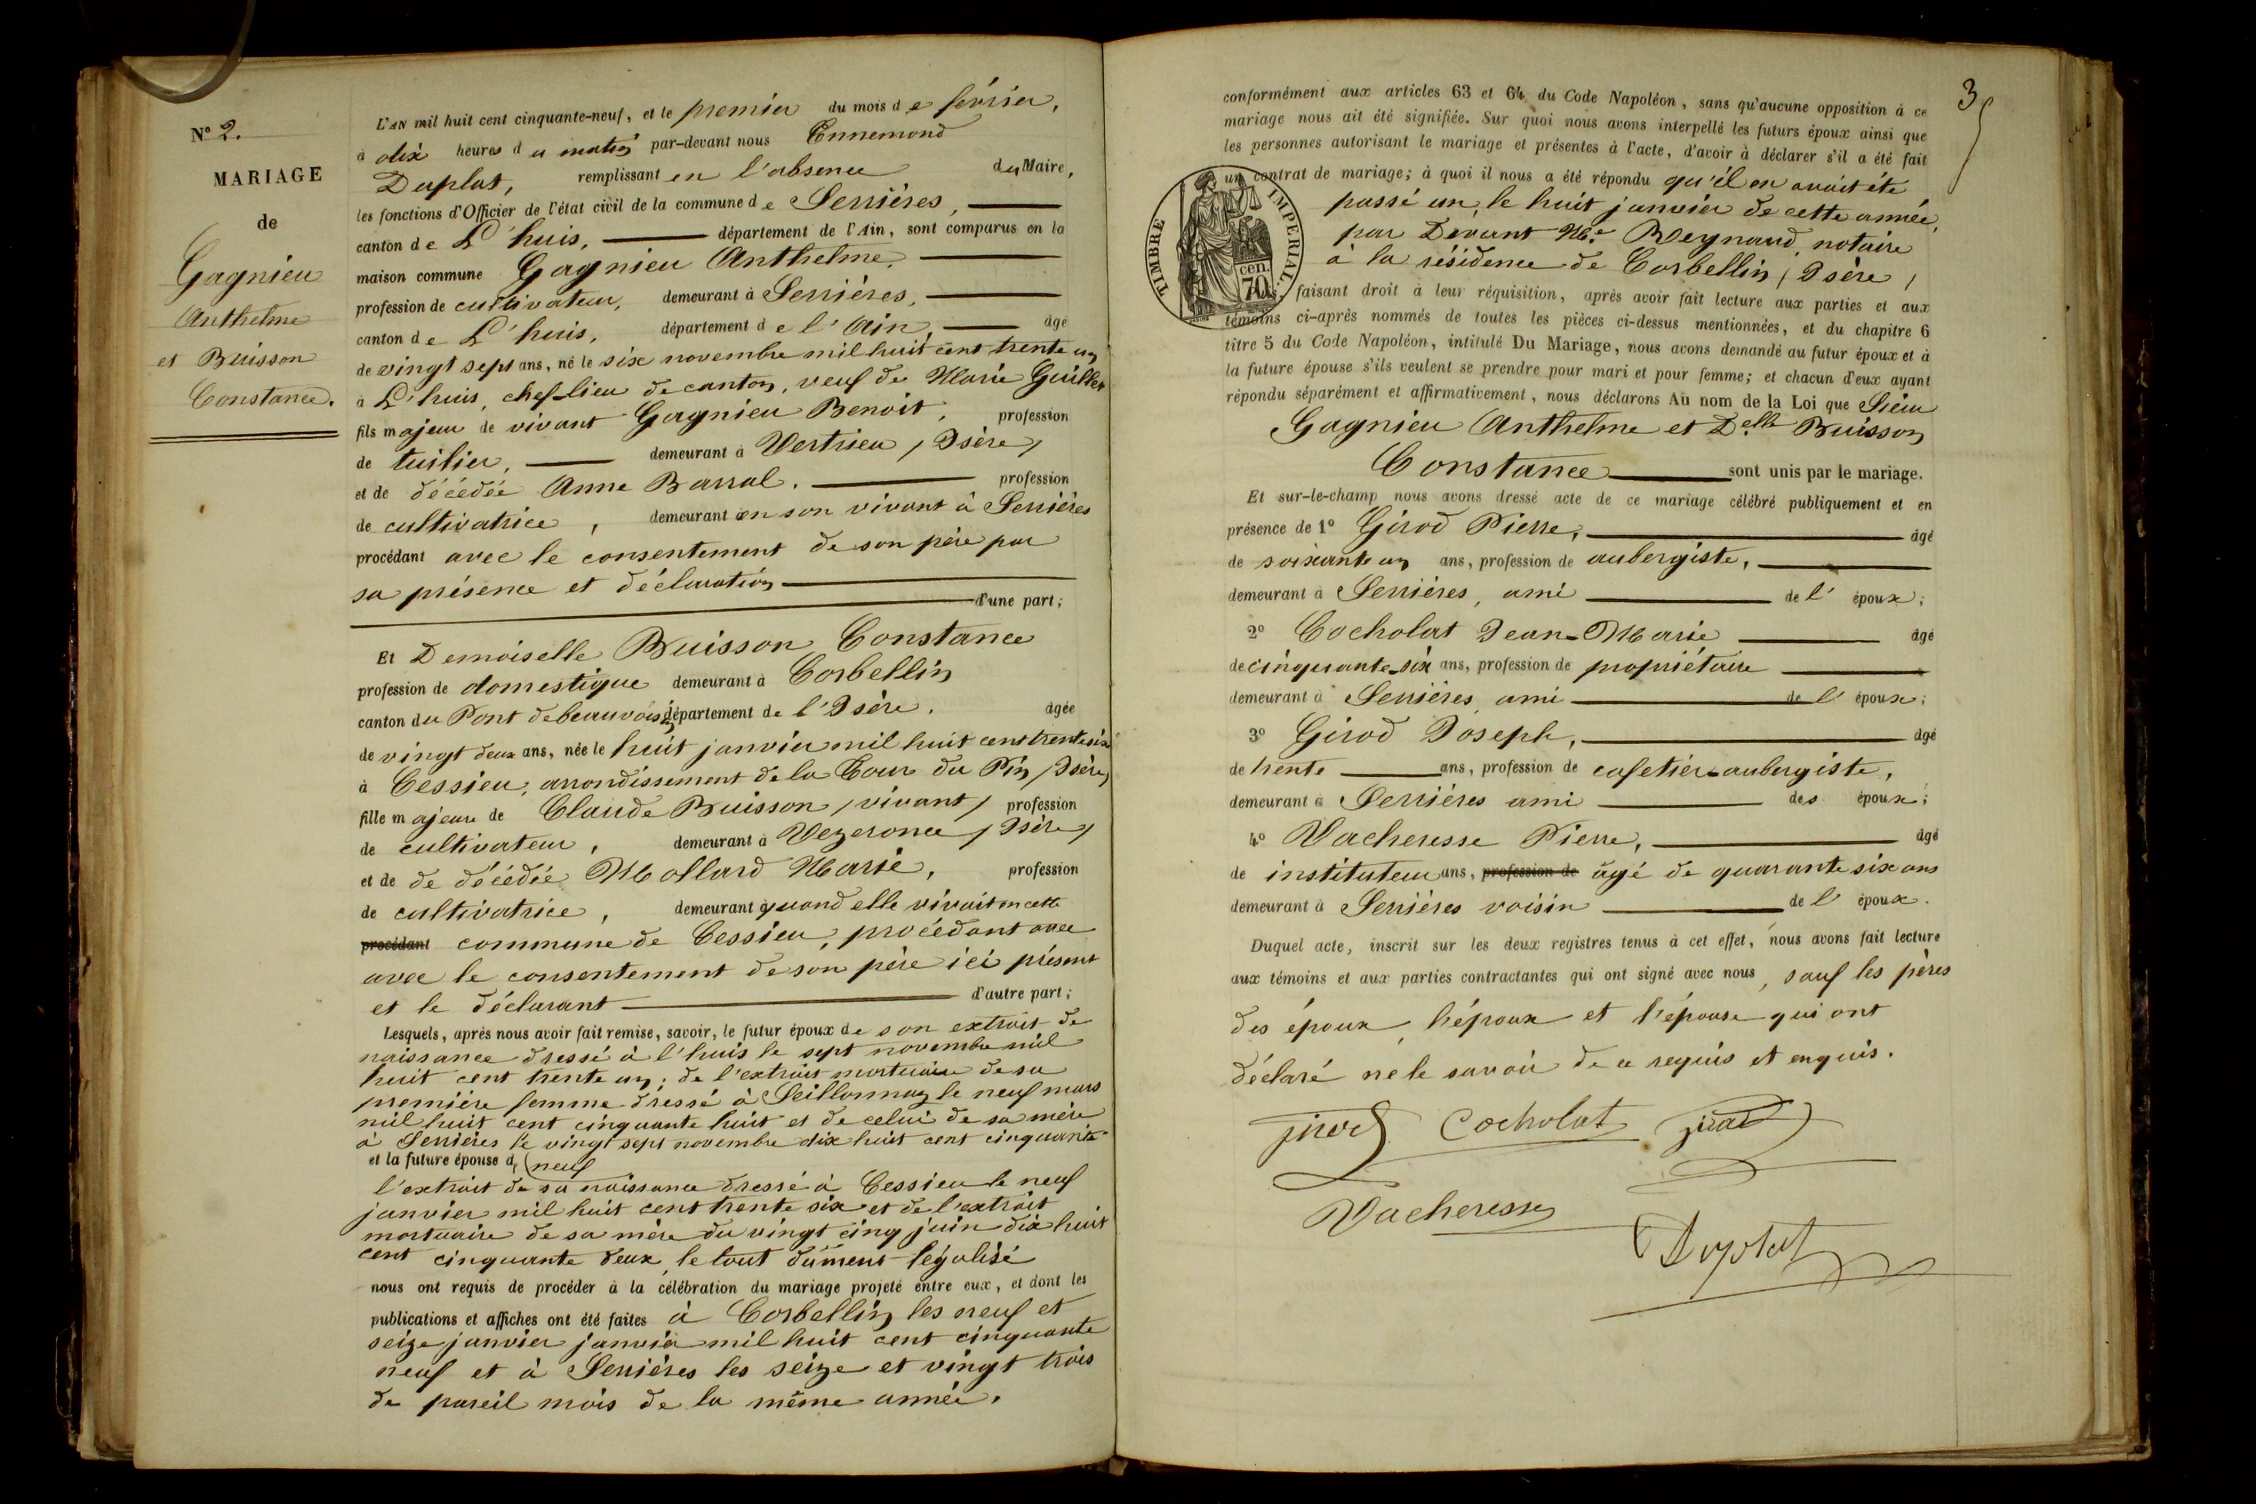 N° 2.
MARIAGE
de
Gagnieu
Anthelme
et Buisson
Constance.
L'AN mil huit cent cinquante-neuf, et le premier du mois de février,
à dix heures du matin par-devant nous Ennemond
Duplat, remplissant en l'absence du Maire,
les fonctions d'Officier de l'état civil de la commune de Serrières,
canton de L'huis, département de l'Ain, sont comparus en la
maison commune Gagnieu Anthelme,
profession de cultivateur, demeurant à Serrières,
canton de L'huis, département de l'Ain, âgé
de vingt sept ans, né le six novembre mil huit cent trente un
à L'huis, chef-lieu de canton, veuf de Marie Guillet
fils majeur de vivant Gagnieu Benoit, profession
de tuilier, demeurant à Vertrieu (Isère)
et de décédée Anne Barral, profession
de cultivatrice, demeurant en son vivant à Serrières
procédant avec le consentement de son père par
sa présence et déclaration
d'une part;
Et Demoiselle Buisson Constance
profession de domestique demeurant à Corbellin
canton du Pont debeauvoisin département de l'Isère. âgée
de vingt deux ans, née le huit janvier mil huit cent trente six
à Cessieu, arrondissement de la Tour du Pin (Isère)
fille majeure de Claude Buisson (vivant) profession
de cultivateur, demeurant à Vezeronce (Isère)
et de de décédée Mollard Marie, profession
de cultivatrice, demeurant à quand elle vivait en cette
procédant commune de Cessieu, procédant avec
avec le consentement de son père ici présent
et le déclarant d'autre part;
Lesquels, après nous avoir fait remise, savoir, le futur époux de son extrait de
naissance dressé à l'huis le sept novembre mil
huit cent trente un; de l'extrait mortuaire de sa
première femme dressé à Seillonnaz le neuf mars
mil huit cent cinquante huit et de celui de sa mère
à Serrières le vingt sept novembre dix huit cent cinquante
et la future épouse d, (neuf
l'extrait de sa naissance dressé à Cessieu le neuf
janvier mil huit cent trente six et de l'extrait
mortuaire de sa mère du vingt cinq juin dix huit
cent cinquante deux, le tout dûment légalisé
nous ont requis de procéder à la célébration du mariage projeté entre eux, et dont les
publications et affiches ont été faites à Corbellin les neuf et
seize janvier janvier mil huit cent cinquante
neuf et à Serrières les seize et vingt trois
de pareil mois de la même année.
3
conformément aux articles 63 et 64 du Code Napoléon, sans qu'aucune opposition à ce
mariage nous ait été signifiée. Sur quoi nous avons interpellé les futurs époux ainsi que
les personnes autorisant le mariage et présentes à l'acte, d'avoir à déclarer s'il a été fait
un contrat de mariage; à quoi il nous a été répondu qu'il en avait été
passé un, le huit janvier de cette année,
par Devant Me. Reynaud, notaire
à la résidence de Corbellin (Isère)
TIMBRE IMPERIAL.
cen.
70
faisant droit à leur réquisition, après avoir fait lecture aux parties et aux
témoins ci-après nommés de toutes les pièces ci-dessus mentionnées, et du chapitre 6
titre 5 du Code Napoléon, intitulé Du Mariage, nous avons demandé au futur époux et à
la future épouse s'ils veulent se prendre pour mari et pour femme; et chacun d'eux ayant
répondu séparément et affirmativement, nous déclarons Au nom de la Loi que Sieur
Gagnieu Anthelme et Delle Buisson
Constance sont unis par le mariage.
Et sur-le-champ nous avons dressé acte de ce mariage célébré publiquement et en
présence de 1° Girod Pierre, âgé
de soixante un ans, profession de aubergiste,
demeurant à Serrières, ami de l'époux;
2° Cocholat Jean-Marie âgé
de cinquante-six ans, profession de propriétaire
demeurant à Serrières, ami de l'époux;
3° Girod Joseph, âgé
de trente ans, profession de cafetier-aubergiste,
demeurant à Serrières ami des époux;
4° Vacheresse Pierre, âgé
de instituteur ans, profession de âgé de quarante six ans
demeurant à Serrières voisin de l'époux.
Duquel acte, inscrit sur les deux registres tenus à cet effet, nous avons fait lecture
aux témoins et aux parties contractantes qui ont signé avec nous, sauf les pères
des époux, l'époux et l'épouse qui ont
déclaré ne le savoir de ce requis et enquis.
Girod Cocholat Girod
Vacheresse
Duplat